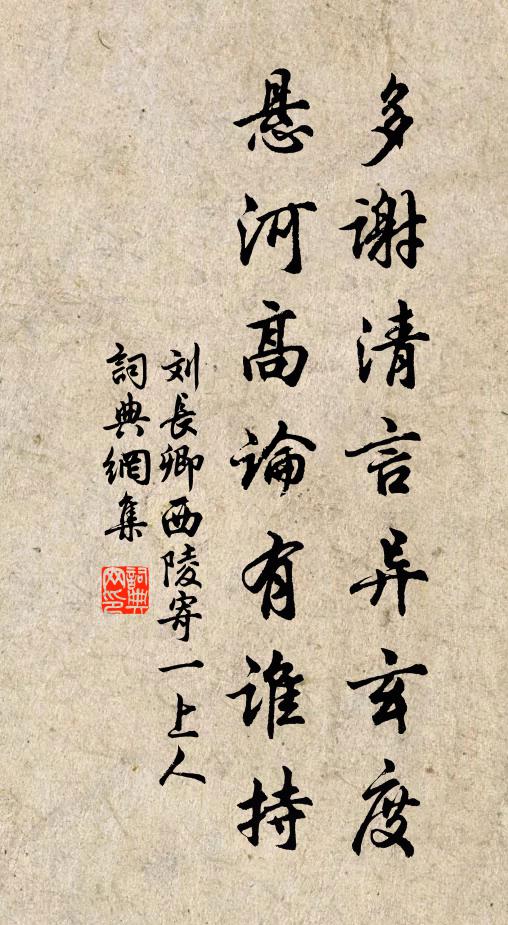 多謝清言异玄度
悬河高論有谁持
刘長卿西陵寄一上人
詞典網集
詞典網印